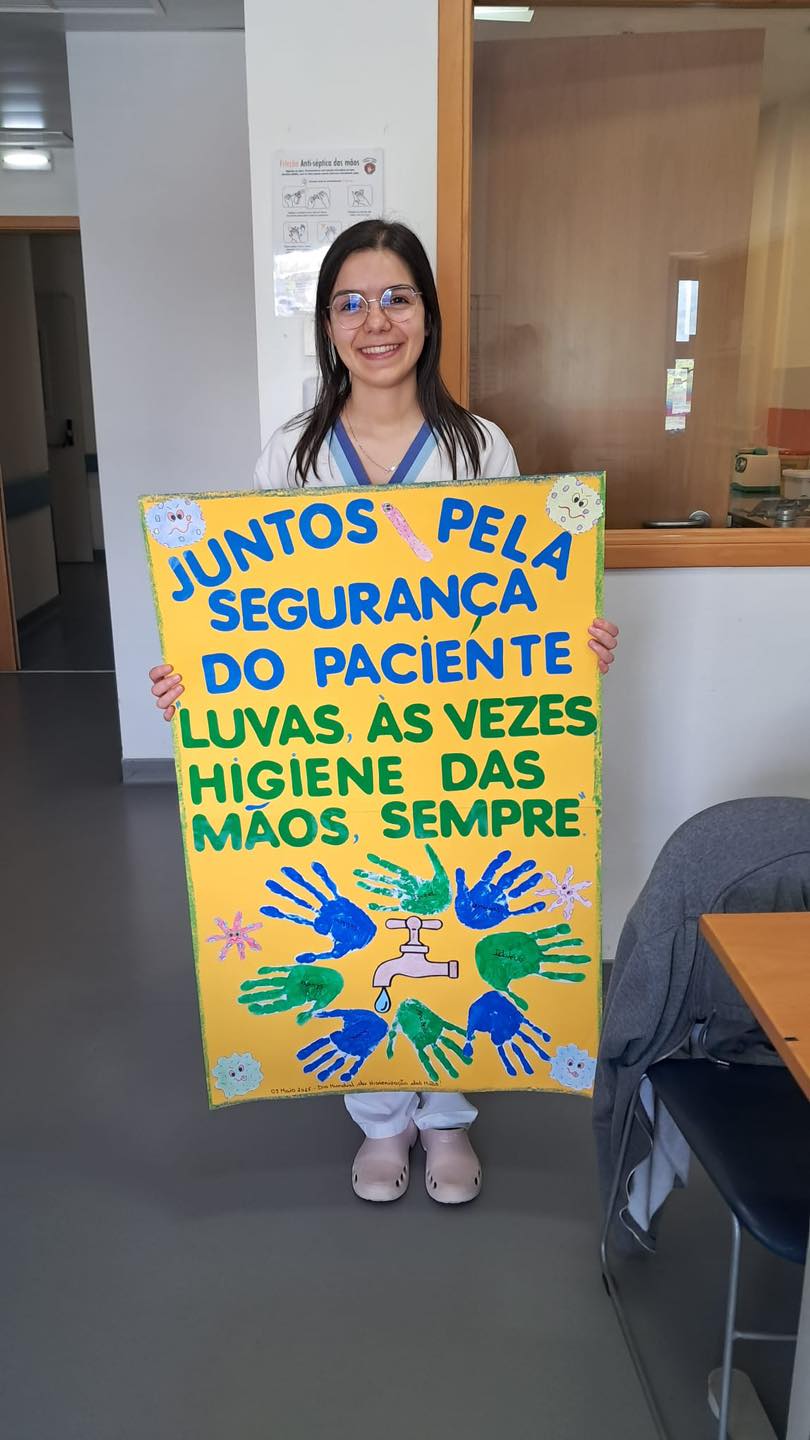 Fricção Anti-séptica das mãos
JUNTOS PELA
SEGURANÇA
DO PACIENTE
"LUVAS, ÀS VEZES
HIGIENE DAS
MÃOS, SEMPRE".
Dia Mundial da Higienização das Mãos